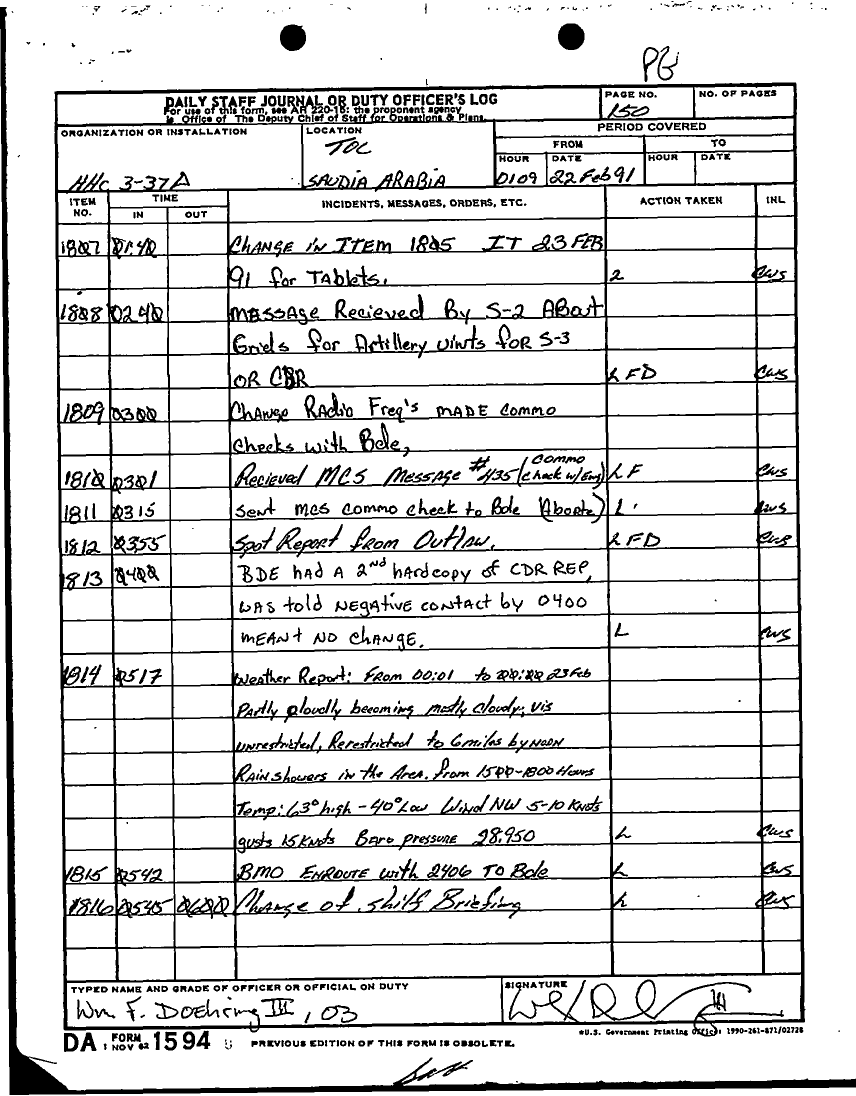 PG
DAILY STAFF JOURNAL OR DUTY OFFICER'S LOG
For use of this form, see AR 220-15: the proponent agency
is Office of The Deputy Chief of Staff for Operations & Plans.
PAGE NO.
150
NO. OF PAGES
ORGANIZATION OR INSTALLATION
HHC 3-37A
LOCATION
TOC
SAUDIA ARABIA
PERIOD COVERED
FROM TO
HOUR DATE HOUR DATE
0109 22 Feb 91
ITEM NO. TIME IN OUT INCIDENTS, MESSAGES, ORDERS, ETC. ACTION TAKEN INL
1807 0140 CHANGE in ITEM 1805 IT 23 FEB
91 for TAblets. 2 CWS
1808 0240 MESSAge Recieved By S-2 About
Grids for Artillery uints foR S-3
OR L FD CWS
1809 0300 Change Radio Freq's MADE commo
checks with Bde,
1810 0301 Recieved MCS Message #435 (commo check w/ ) L F CWS
1811 0315 sent mcs commo check to Bde (Aborte) L CWS
1812 0355 Spot Report from Outlaw. L FD CWS
1813 0400 BDE hAd A 2nd hardcopy of CDR REP,
WAS told NEgAtive contact by 0400
MEANt NO ChANGE. L CWS
1814 0517 Weather Report: From 00:01 to 00:00 23 Feb
Partly cloudly becoming mostly cloudy; vis
unrestricted, Rerestricted to 6 miles by NOON
RAIN showers in the Area. from 1500-1800 Hours
Temp: 63° high - 40° Low Wind NW 5-10 Knots
gusts 15 Knots Baro pressure 28.950 L CWS
1815 0542 BMO ENROUTE with 2406 TO Bde L CWS
1816 0545 0600 Change of shilf Briefing L CWS
TYPED NAME AND GRADE OF OFFICER OR OFFICIAL ON DUTY
Wm F. DOEhring III, 03
SIGNATURE
DA FORM 1594
1 NOV 62
PREVIOUS EDITION OF THIS FORM IS OBSOLETE.
*U.S. Government Printing Office: 1990-261-871/02728